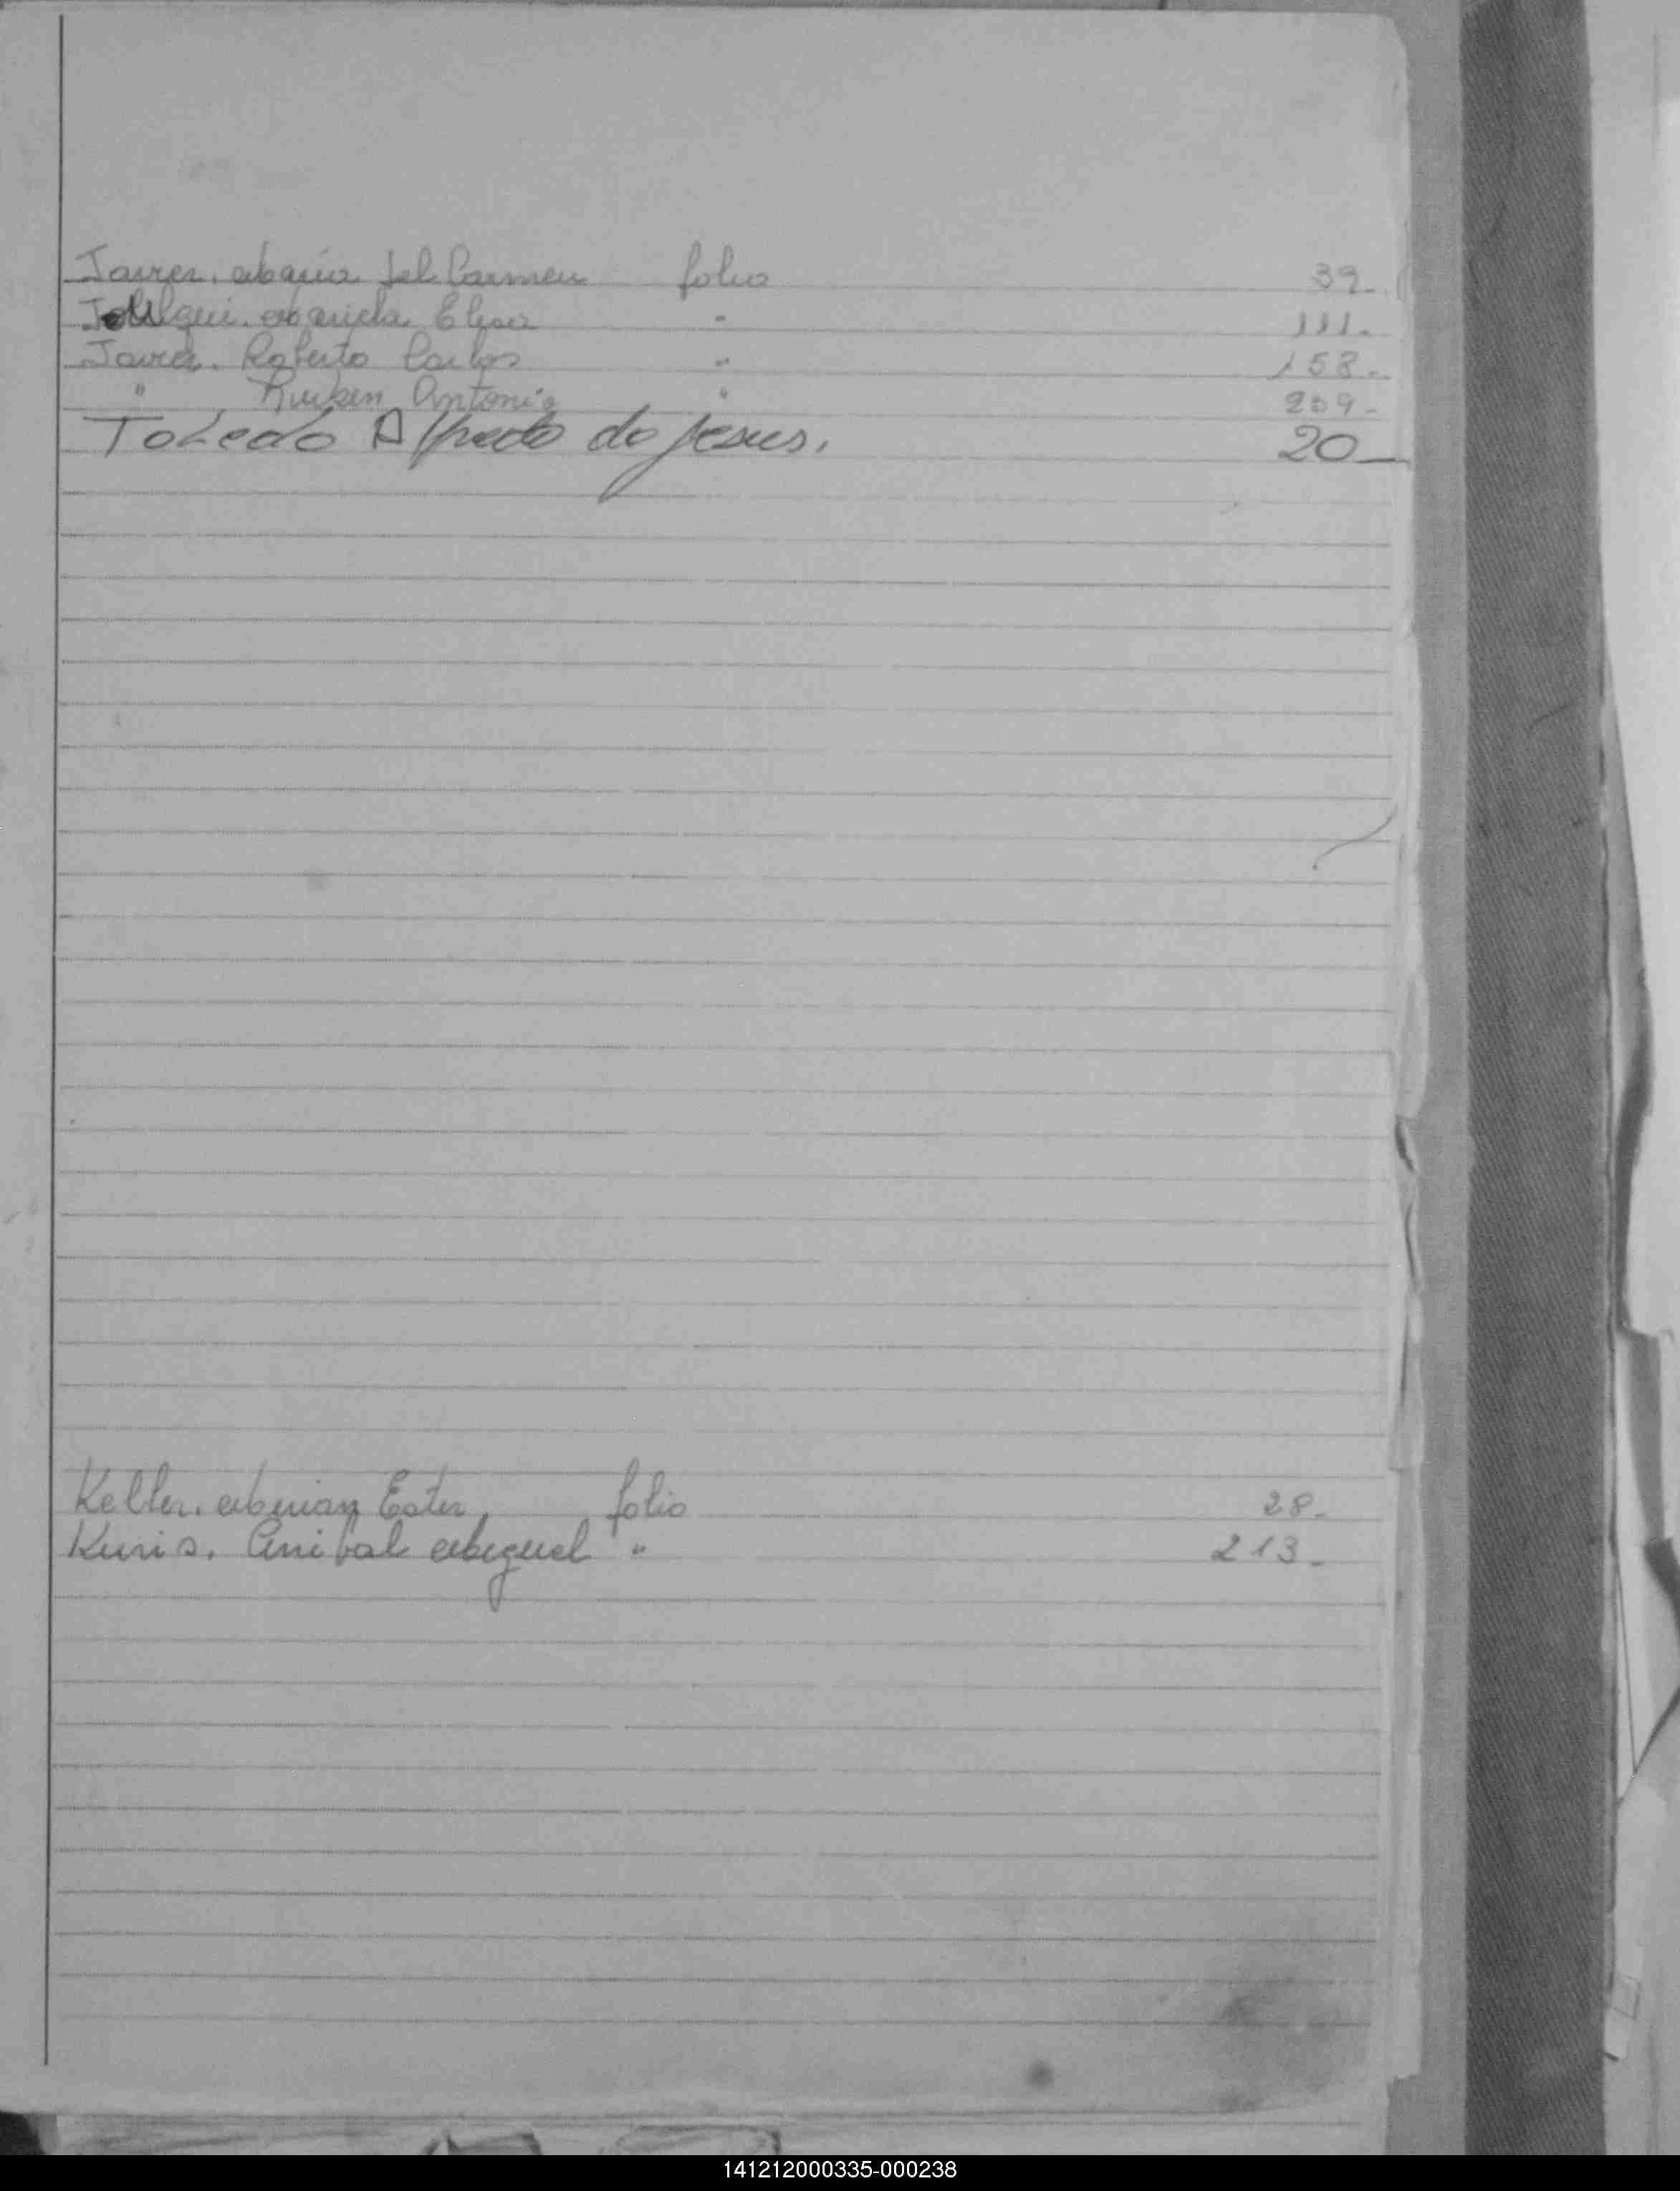 Javier. Maria del Carmen folio 39.-
Mariela Elisa " 111.-
Javier. Roberto Carlos " 158.-
" Ruben Antonio " 209.-
Toledo Alfredo de Jesus. 20-
Keller. Mirian Ester folio 28.-
Kunis. Anibal Miguel " 213.-
141212000335-000238